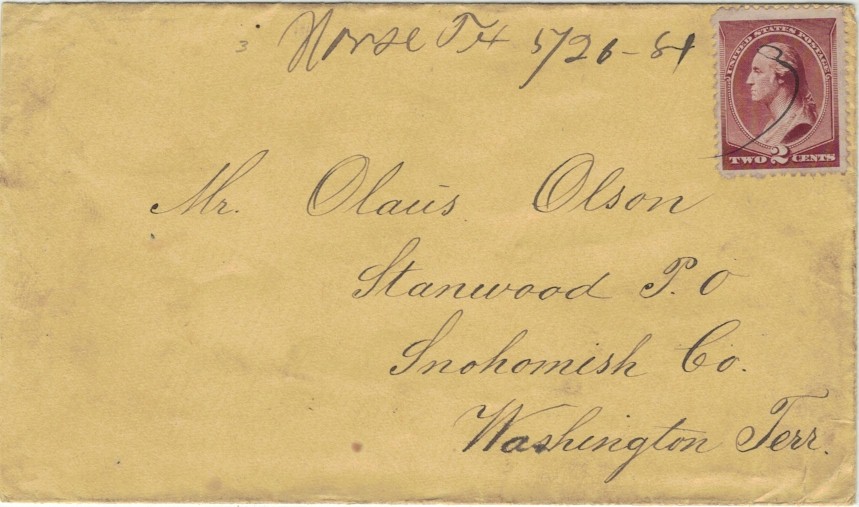 3 Norse Tx 5/26-84
UNITED STATES POSTAGE
TWO 2 CENTS
Mr. Olaus Olson
Stanwood P.O
Snohomish Co.
Washington Terr.